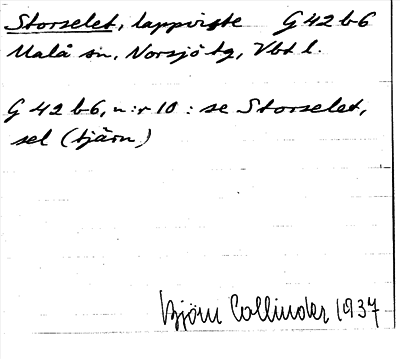 Storselet, lappviste G 42 b 6
Malå sn, Norsjö tg, Vbt l.
G 42 b 6, n:r 10 : se Storselet,
sel (tjärn)
Björn Collinder 1937